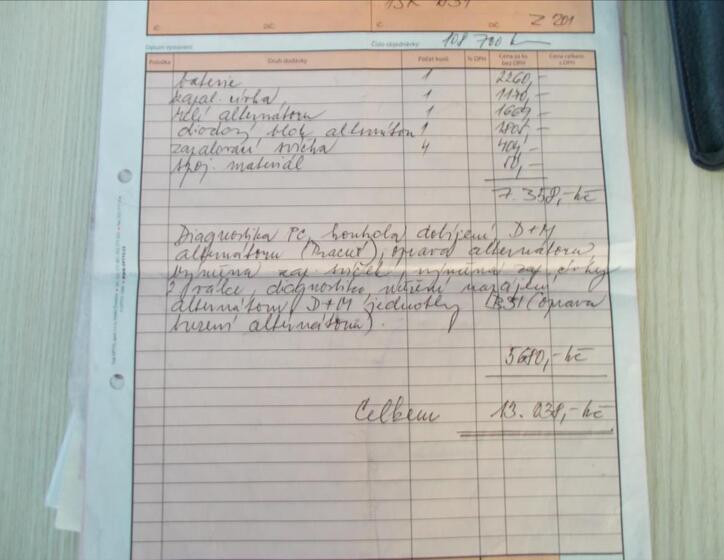 IČ: DIČ: IČ: DIČ: Z 201
Datum vystavení: Číslo objednávky: 108 700 km
Položka Druh dodávky Počet kusů % DPH Cena za ks bez DPH Cena celkem s DPH
baterie 1 2260,-
zapal. cívka 1
relé alternátoru 1
diodový blok alternátoru 1
zapalovací svíčka 4 404,-
spoj. materiál
7.358,-kč
Diagnostika PC, kontrola dobíjení, D+M
alternátoru (Pracus), oprava alternátoru
výměna zaj. svíček, výměna zaj. cívky
diagnostika, měření napájení
alternátoru, D+M jednotky BSI (oprava
buzení alternátorů).
5680,-kč
Celkem 13.038,-kč